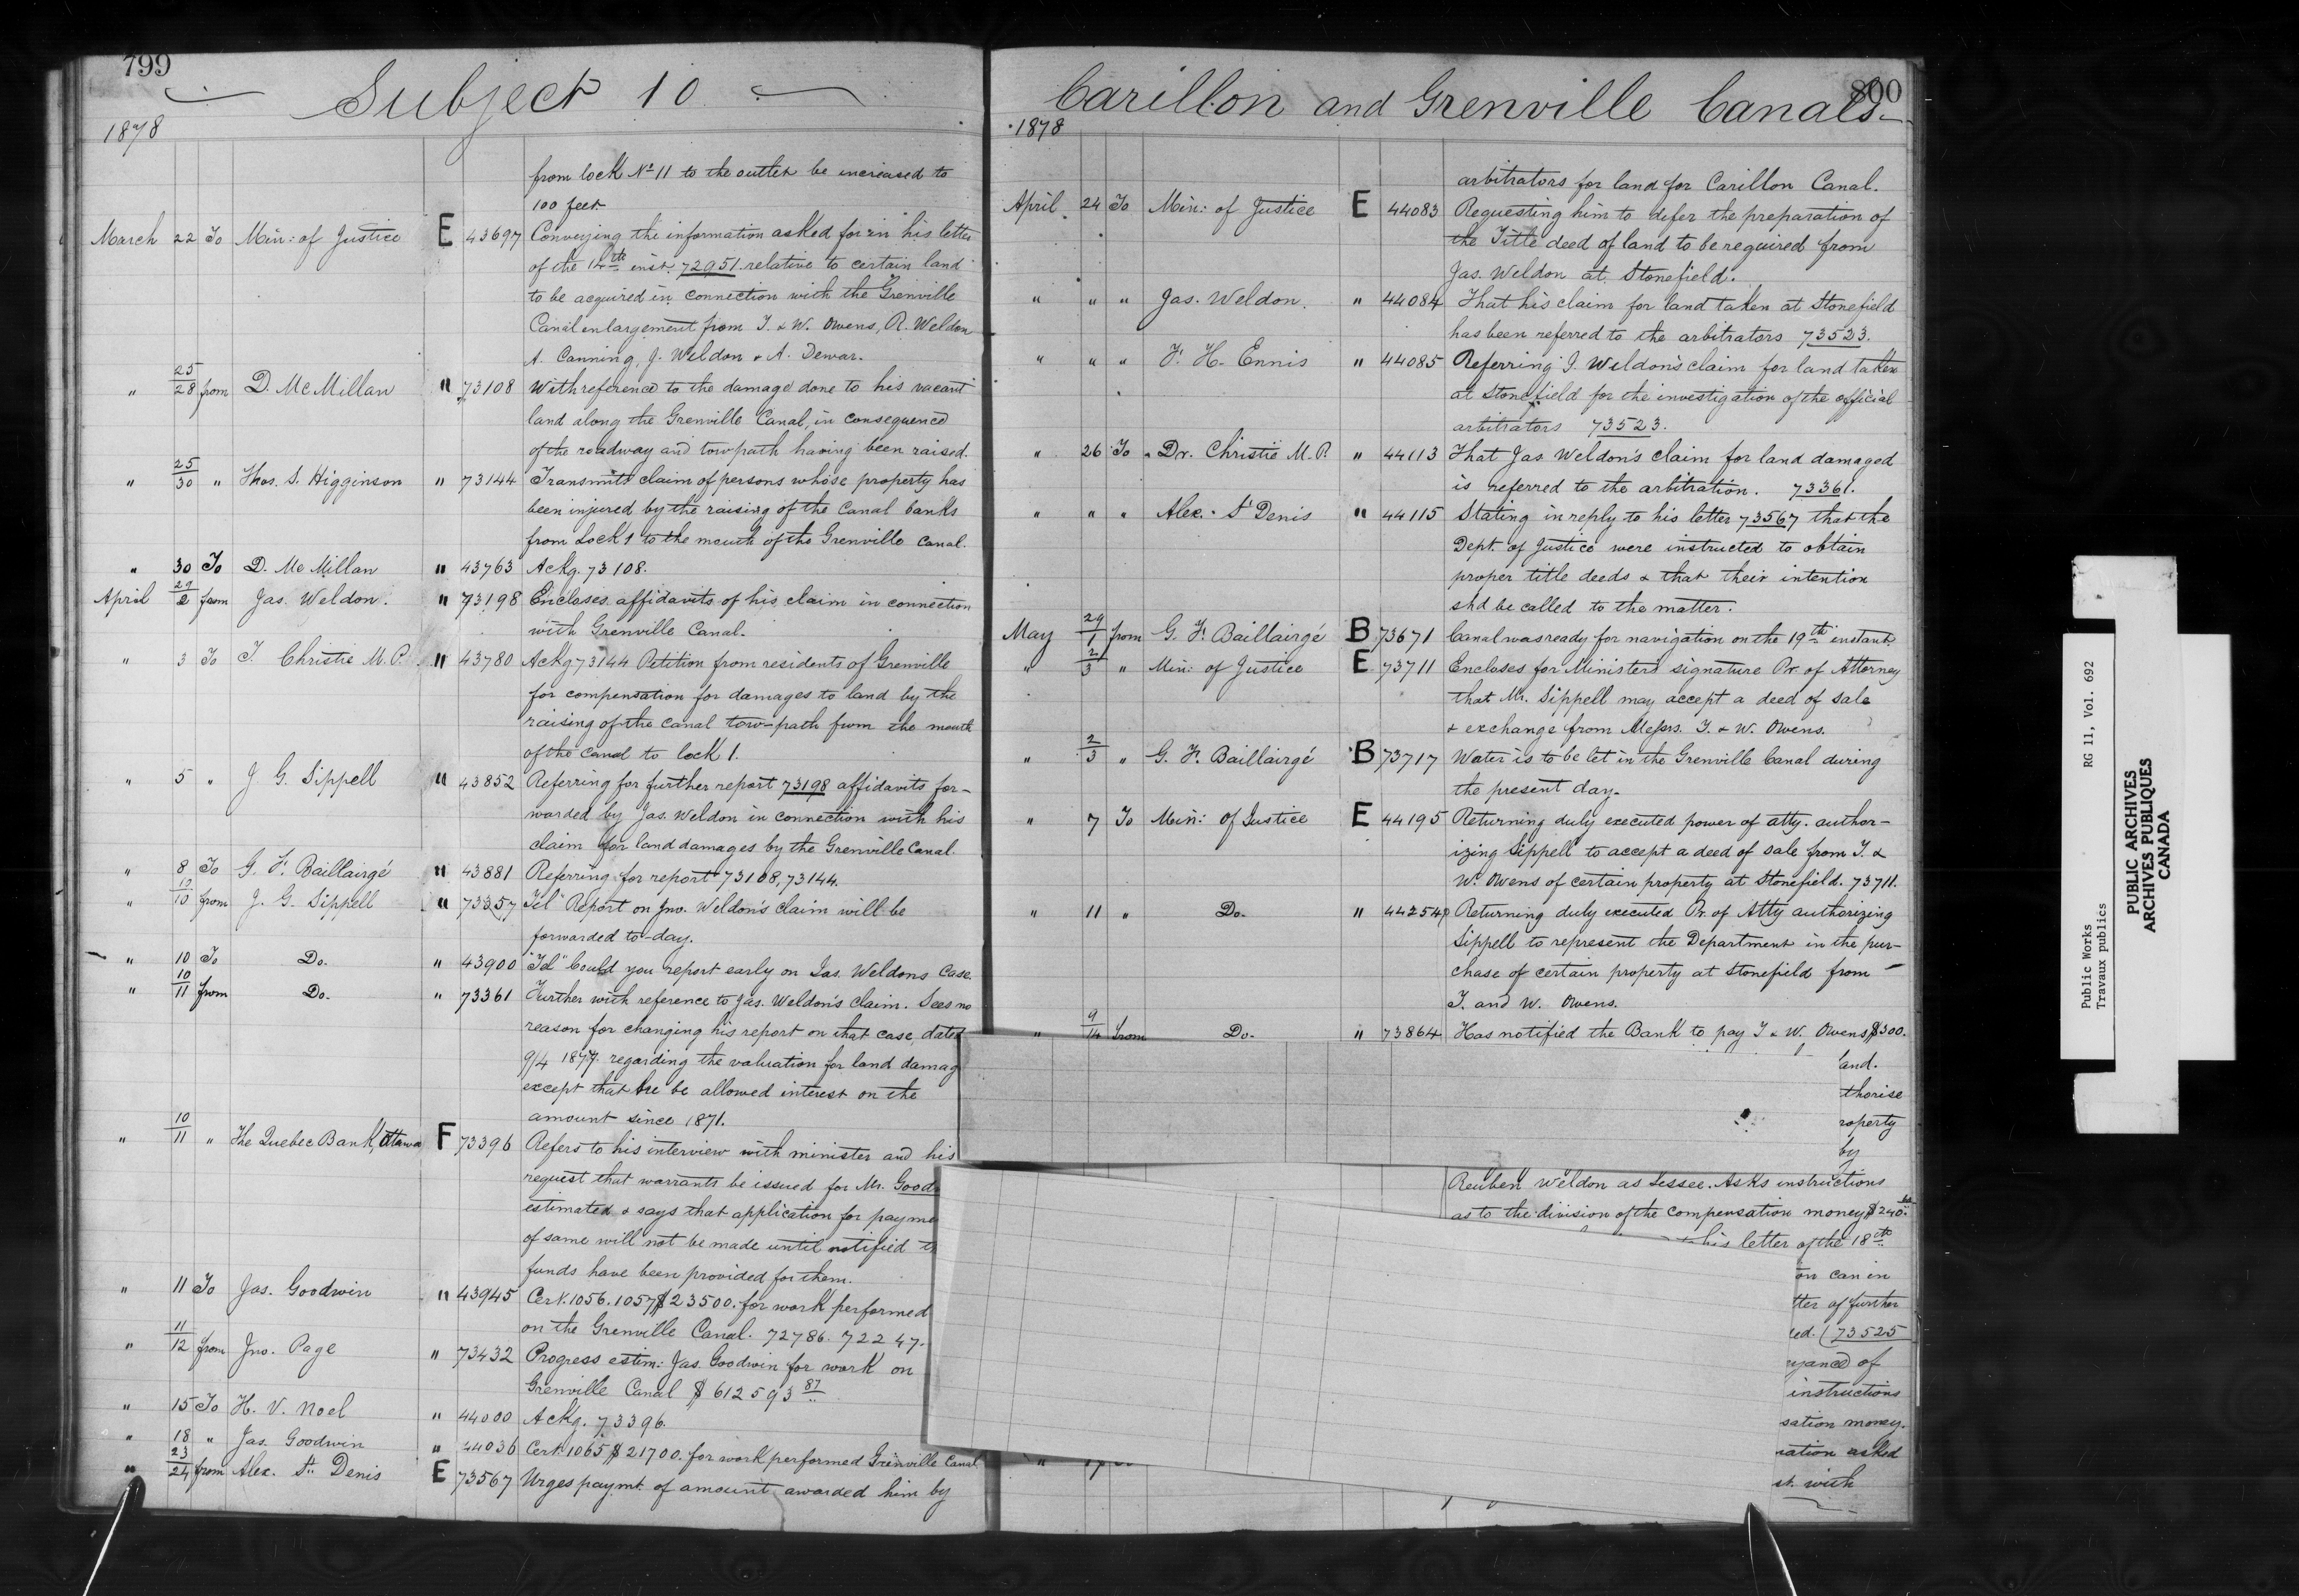 799
Subject 10
1878
from lock No 11 to the outlet be increased to
100 feet.
March 22 To Min: of Justice E 43697 Conveying the information asked for in his letter
of the 14th inst. 72951. relative to certain land
to be acquired in connection with the Grenville
Canal enlargement from T. & W. Owens, R. Weldon
A. Canning, J. Weldon & A. Dewar.
" 25/28 from D. McMillan " 73108 With reference to the damage done to his vacant
land along the Grenville Canal, in consequence
of the roadway and towpath having been raised.
" 25/30 " Thos. S. Higginson " 73144 Transmits claim of persons whose property has
been injured by the raising of the Canal banks
from Lock 1 to the mouth of the Grenville Canal.
" 30 To D. McMillan " 43763 Ackg. 73108.
April 29/2 from Jas. Weldon. " 73198 Encloses affidavits of his claim in connection
with Grenville Canal.
" 3 To T. Christie M.P. " 43780 Ackg 73144 Petition from residents of Grenville
for compensation for damages to land by the
raising of the canal tow-path from the mouth
of the Canal to lock 1.
" 5 " J G. Sippell " 43852 Referring for further report 73198 affidavits for-
warded by Jas. Weldon in connection with his
claim for land damages by the Grenville Canal.
" 8 To G. F. Baillairgé " 43881 Referring for report 73108, 73144.
" 10/10 from J. G. Sippell " 73357 "Tel" Report on Jno. Weldon's claim will be
forwarded to-day.
" 10 To Do. " 43900 "Tel" Could you report early on Jas. Weldons case.
" 10/11 from Do. " 73361 Further with reference to Jas. Weldon's claim. Sees no
reason for changing his report on that case, dated
9/4 1877. regarding the valuation for land damag
except that he be allowed interest on the
amount since 1871.
" 10/11 " The Quebec Bank, Ottawa F 73396 Refers to his interview with minister and his
request that warrants be issued for Mr. Good
estimates & says that application for payme
of same will not be made until notified th
funds have been provided for them.
" 11 To Jas. Goodwin " 43945 Cert. 1056. 1057 $23500. for work performed
on the Grenville Canal. 72786. 72247.
" 11/12 from Jno. Page " 73432 Progress estim: Jas. Goodwin for work on
Grenville Canal $612593 87
" 15 To H. V. Noel " 44000 Ackg. 73396.
" 18 " Jas. Goodwin " 44036 Cert. 1065 $21700. for work performed Grenville Canal
" 23/24 from Alex. St. Denis E 73567 Urges paymt. of amount awarded him by
800
Carillon and Grenville Canals
1878
arbitrators for land for Carillon Canal.
April 24 To Min: of Justice E 44083 Requesting him to defer the preparation of
the Title deed of land to be required from
Jas. Weldon at Stonefield.
" " " Jas. Weldon. " 44084 That his claim for land taken at Stonefield
has been referred to the arbitrators 73523.
" " " F. H. Ennis " 44085 Referring J. Weldon's claim for land taken
at Stonefield for the investigation of the official
arbitrators 73523.
" 26 To Dr. Christie M.P. " 44113 That Jas Weldon's claim for land damaged
is referred to the arbitration. 73361.
" " " Alex. St Denis " 44115 Stating in reply to his letter 73567 that the
Dept. of Justice were instructed to obtain
proper title deeds & that their intention
shd be called to the matter.
May 29/1 from G. F. Baillairgé B 73671 Canal was ready for navigation on the 19th instant.
" 2/3 " Min: of Justice E 73711 Encloses for Ministers signature Pr. of Attorney
that Mr. Sippell may accept a deed of sale
& exchange from Messrs. T. & W. Owens.
" 2/3 " G. F. Baillairgé B 73717 Water is to be let in the Grenville Canal during
the present day.
" 7 To Min: of Justice E 44195 Returning duly executed power of atty. author-
izing Sippell to accept a deed of sale from T. &
W. Owens of certain property at Stonefield. 73711.
" 11 " Do. " 44254 Returning duly executed Pr. of Atty authorizing
Sippell to represent the Department in the pur-
chase of certain property at Stonefield from
T. and W. Owens.
" 9/14 from Do. " 73864 Has notified the Bank to pay T & W. Owens $300.
and.
thorise
roperty
by
Reuben Weldon as Lessee. Asks instructions
as to the division of the compensation money $240.
his letter of the 18th
on can in
tter of further
ed. (73525
yance of
instructions
sation money.
ration asked
st. with
Public Works RG 11, Vol. 692
Travaux publics
PUBLIC ARCHIVES
ARCHIVES PUBLIQUES
CANADA